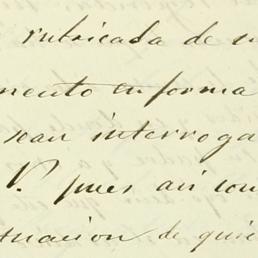 rubricada de su
mento en forma
sean interroga
V. pues asi con
tuacion de quie